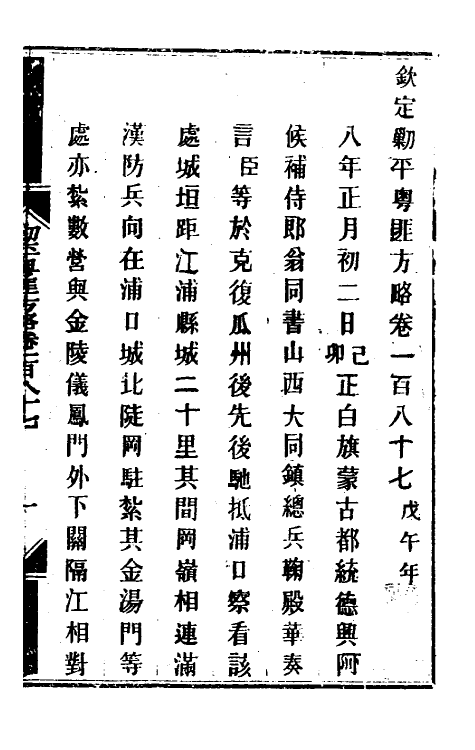 欽定勦平粵匪方略卷一百八十七戊午年
八年正月初二日己卯正白旗蒙古都統德興阿
候補侍郎翁同書山西大同鎮總兵鞠殿華奏
言臣等於克復瓜州後先後馳抵浦口察看該
處城垣距江浦縣城二十里其間岡嶺相連滿
漢防兵向在浦口城北陡岡駐紮其金湯門等
處亦紮數營與金陵儀鳳門外下關隔江相對
一